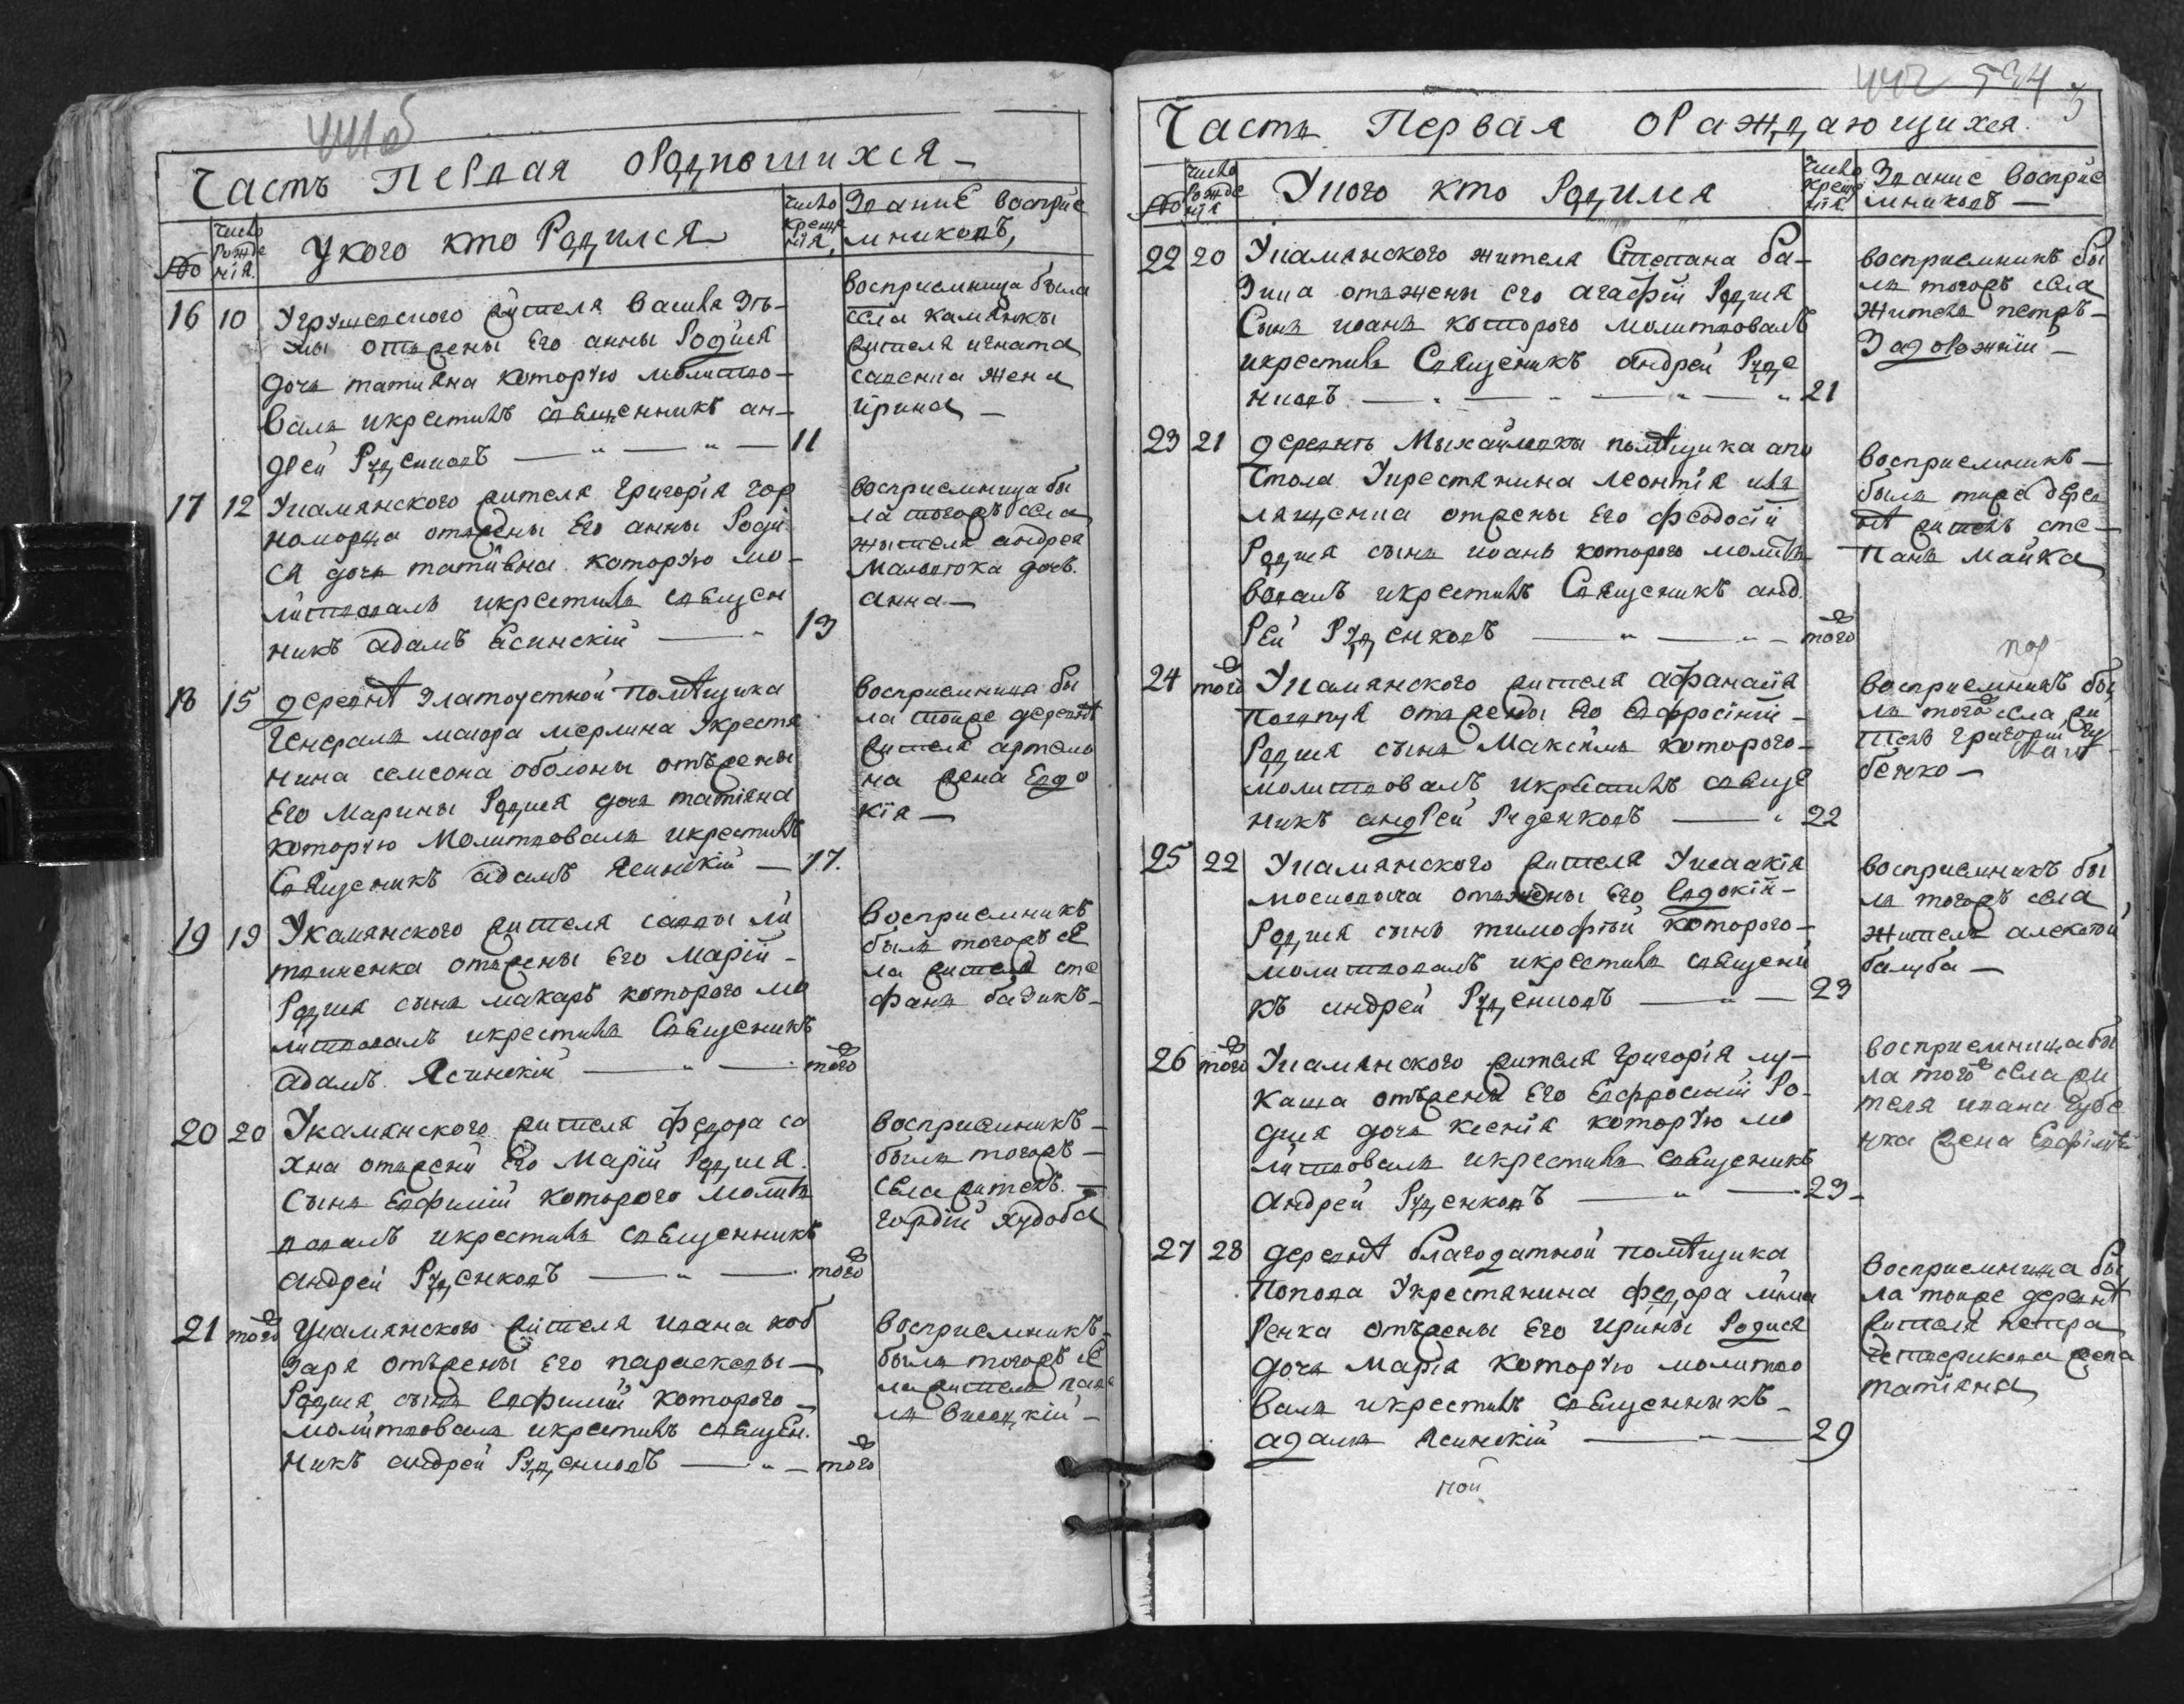 Часть Первая о родившихся
№
число рожденія
У кого кто Родился
число крещенія
Званіе восприе
мниковъ,
16 10 У грушевского жителя
отъ жены Его анны Родися
дочь татиана которую молитво-
валъ и крестилъ священникъ ан-
дрей Руденковъ — " — " — 11
восприемница была
села камянки
жителя игната
жена
ирина —
17 12 У камянского жителя григорія чор
номорца отъ жены Его анны Роди
ся дочь татиана которую мо-
литвовалъ и крестилъ священ
никъ адамъ Ясинскій — " 13
восприемница бы
ла тогожъ села
жителя андрея
дочь
анна —
18 15 деревнѣ Златоустной помѣщика
Генерала маіора мерлина У крестя
нина самсона оболоны отъ жены
Его Марины Родися дочь татіана
которую Молитвовалъ и крестилъ
Священикъ адамъ Ясинскій — 17.
восприемница бы
ла тоиже деревнѣ
жителя артема
на жена Евдо
кія —
19 19 У камянского жителя саввы ли
твиненка отъ жены Его Маріи -
Родися сынъ макаръ которого мо
литвовалъ и крестилъ Священикъ
адамъ Ясинскій — " — того
восприемникъ
былъ тогожъ се
ла житель сте
фанъ базикъ -
20 20 У камянского жителя федора со
хна отъ жены Его Маріи Родися
Сынъ Евфимій которого молит
вовалъ и крестилъ священникъ
андрей Руденковъ — " — того
восприемникъ -
былъ тогожъ -
села житель -
гордій худоба
21 того У камянского жителя ивана коб
заря отъ жены Его параскевы —
Родися сынъ Евфимій которого -
молитвовалъ и крестилъ священ.
никъ андрей Руденковъ — " — того
восприемникъ -
былъ тогожъ се
ла житель пав
ла висоцкій -
534
Часть Первая о Раждающихся.
№
число Рожденія
У кого кто Родился
число крещенія
Званіе восприе
мниковъ —
22 20 У камянского жителя Степана ба-
зика отъ жены его агафіи Родися
Сынъ иоанъ которого молитвовалъ
и крестилъ Священикъ андрей Руде
нковъ — " — " — " 21
восприемникъ бы
лъ тогожъ села
житель петръ -
Задорожній -
23 21 деревнѣ Михайловки помѣщика апо
стола У крестянина леонтія
отъ жены Его феодосіи
Родися сынъ иоанъ которого молитв
вовалъ и крестилъ Священикъ анд.
Рей Руденковъ — " — " — того
восприемникъ —
былъ тоиже дерев
нѣ житель сте-
панъ майка
24 того У камянского жителя афанасія
потапуя отъ жены Его Евфросиніи -
Родися сынъ Максимъ которого -
молитвовалъ и крестилъ священ
никъ андрей Руденковъ — " 22
восприемникъ бы
лъ того села жи
тель григорій гу
бенко —
25 22 У камянского жителя У исаакія
отъ жены Его Евдокіи -
Родися сынъ тимофей которого -
молитвовалъ и крестилъ священи
къ андрей Руденковъ — " — 23
восприемникъ бы
лъ тогожъ села
житель алексей
балуба —
26 того У камянского жителя григорія лу-
каша отъ жены Его Евфросиніи Ро-
дися дочь ксенія которую мо
литвовалъ и крестилъ священикъ
андрей Руденковъ — " — 23 -
восприемница бы
ла того села жи
теля ивана губе
нка жена Евфимія
27 28 деревнѣ благодатной помѣщика
Попова У крестянина федора
Ренка отъ жены Его ирины Родися
дочь Марія которую молитво
валъ и крестилъ священникъ -
адамъ Ясинскій — " — 29
восприемница бы
ла тоиже деревнѣ
жителя петра
четверикова жена
татіана